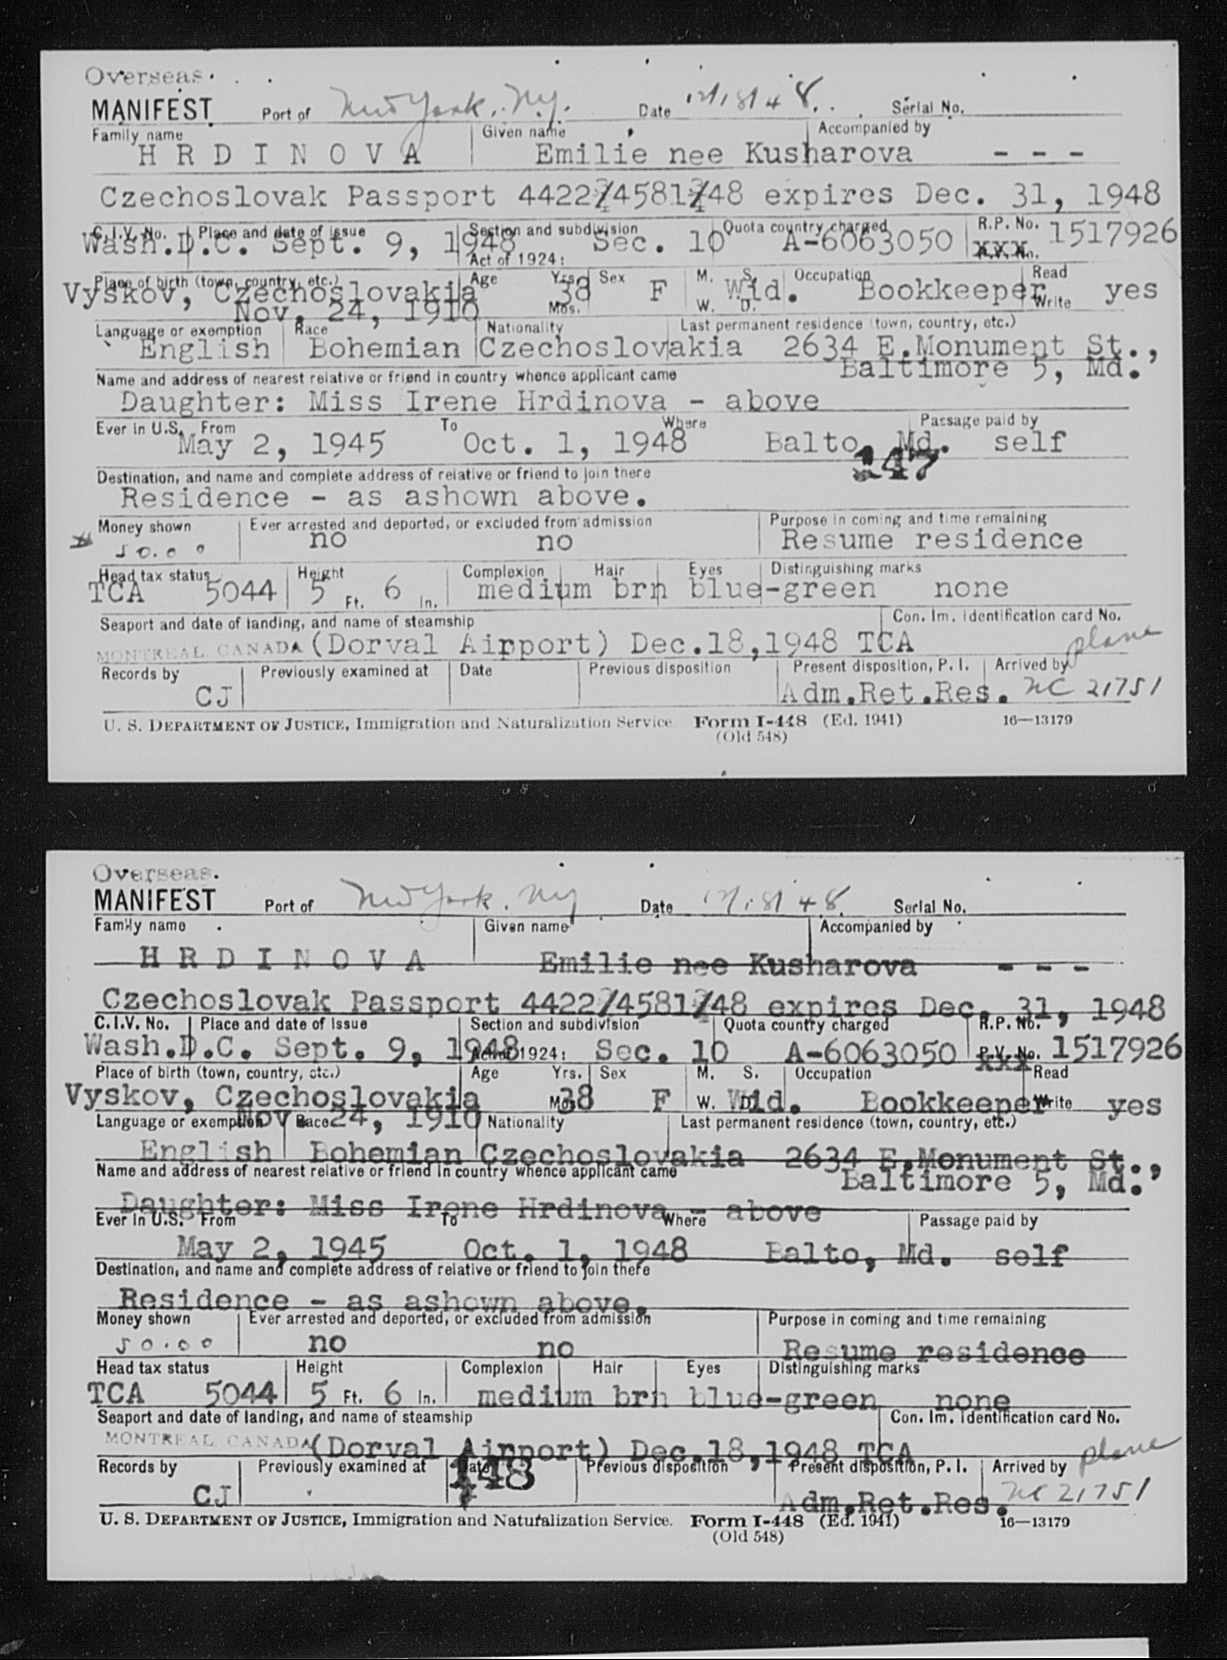 Overseas.
MANIFEST Port of New York, N.Y. Date 12/18/48. Serial No.
Family name Given name Accompanied by
HRDINOVA Emilie nee Kusharova - - -
Czechoslovak Passport 4422/4581/48 expires Dec. 31, 1948
C.I.V. No. Place and date of issue Section and subdivision Quota country charged R.P. No. 1517926
Wash.D.C. Sept. 9, 1948 Sec. 10 A-6063050 xxx
Act of 1924: R.V. No.
Place of birth (town, country, etc.) Age Yrs. Sex M. S. Occupation Read
Vyskov, Czechoslovakia 38 F Wid. Bookkeeper yes
Nov. 24, 1910 Mos. W. D. Write
Language or exemption Race Nationality Last permanent residence (town, country, etc.)
English Bohemian Czechoslovakia 2634 E.Monument St.,
Baltimore 5, Md.
Name and address of nearest relative or friend in country whence applicant came
Daughter: Miss Irene Hrdinova - above
Ever in U.S. From To Where Passage paid by
May 2, 1945 Oct. 1, 1948 Balto, Md. self
147
Destination, and name and complete address of relative or friend to join there
Residence - as ashown above.
Money shown Ever arrested and deported, or excluded from admission Purpose in coming and time remaining
50.00 no no Resume residence
Head tax status Height Complexion Hair Eyes Distinguishing marks
TCA 5044 5 Ft. 6 In. medium brn blue-green none
Seaport and date of landing, and name of steamship Con. Im. Identification card No.
MONTREAL CANADA (Dorval Airport) Dec.18,1948 TCA plane
Records by Previously examined at Date Previous disposition Present disposition, P. I. Arrived by
CJ Adm.Ret.Res. NC 21751
U. S. DEPARTMENT OF JUSTICE, Immigration and Naturalization Service Form I-448 (Ed. 1941) 16—13179
(Old 548)
Overseas.
MANIFEST Port of New York, NY Date 12/18/48. Serial No.
Family name Given name Accompanied by
HRDINOVA Emilie nee Kusharova - - -
Czechoslovak Passport 4422/4581/48 expires Dec. 31, 1948
C.I.V. No. Place and date of issue Section and subdivision Quota country charged R.P. No.
Wash.D.C. Sept. 9, 1948 Act of 1924: Sec. 10 A-6063050 R.V. No. xxx 1517926
Place of birth (town, country, etc.) Age Yrs. Sex M. S. Occupation Read
Vyskov, Czechoslovakia Mos. 38 F W. D. Wid. Bookkeeper Write yes
Nov. 24, 1910
Language or exemption Race Nationality Last permanent residence (town, country, etc.)
English Bohemian Czechoslovakia 2634 E.Monument St.,
Name and address of nearest relative or friend in country whence applicant came
Baltimore 5, Md.
Daughter: Miss Irene Hrdinova - above
Ever in U.S. From To Where Passage paid by
May 2, 1945 Oct. 1, 1948 Balto, Md. self
Destination, and name and complete address of relative or friend to join there
Residence - as ashown above.
Money shown Ever arrested and deported, or excluded from admission Purpose in coming and time remaining
50.00 no no Resume residence
Head tax status Height Complexion Hair Eyes Distinguishing marks
TCA 5044 5 Ft. 6 In. medium brn blue-green none
Seaport and date of landing, and name of steamship Con. Im. Identification card No.
MONTREAL CANADA (Dorval Airport) Dec.18,1948 TCA plane
Records by Previously examined at Date Previous disposition Present disposition, P. I. Arrived by
148
CJ Adm.Ret.Res. NC 21751
U. S. DEPARTMENT OF JUSTICE, Immigration and Naturalization Service. Form I-448 (Ed. 1941) 16—13179
(Old 548)